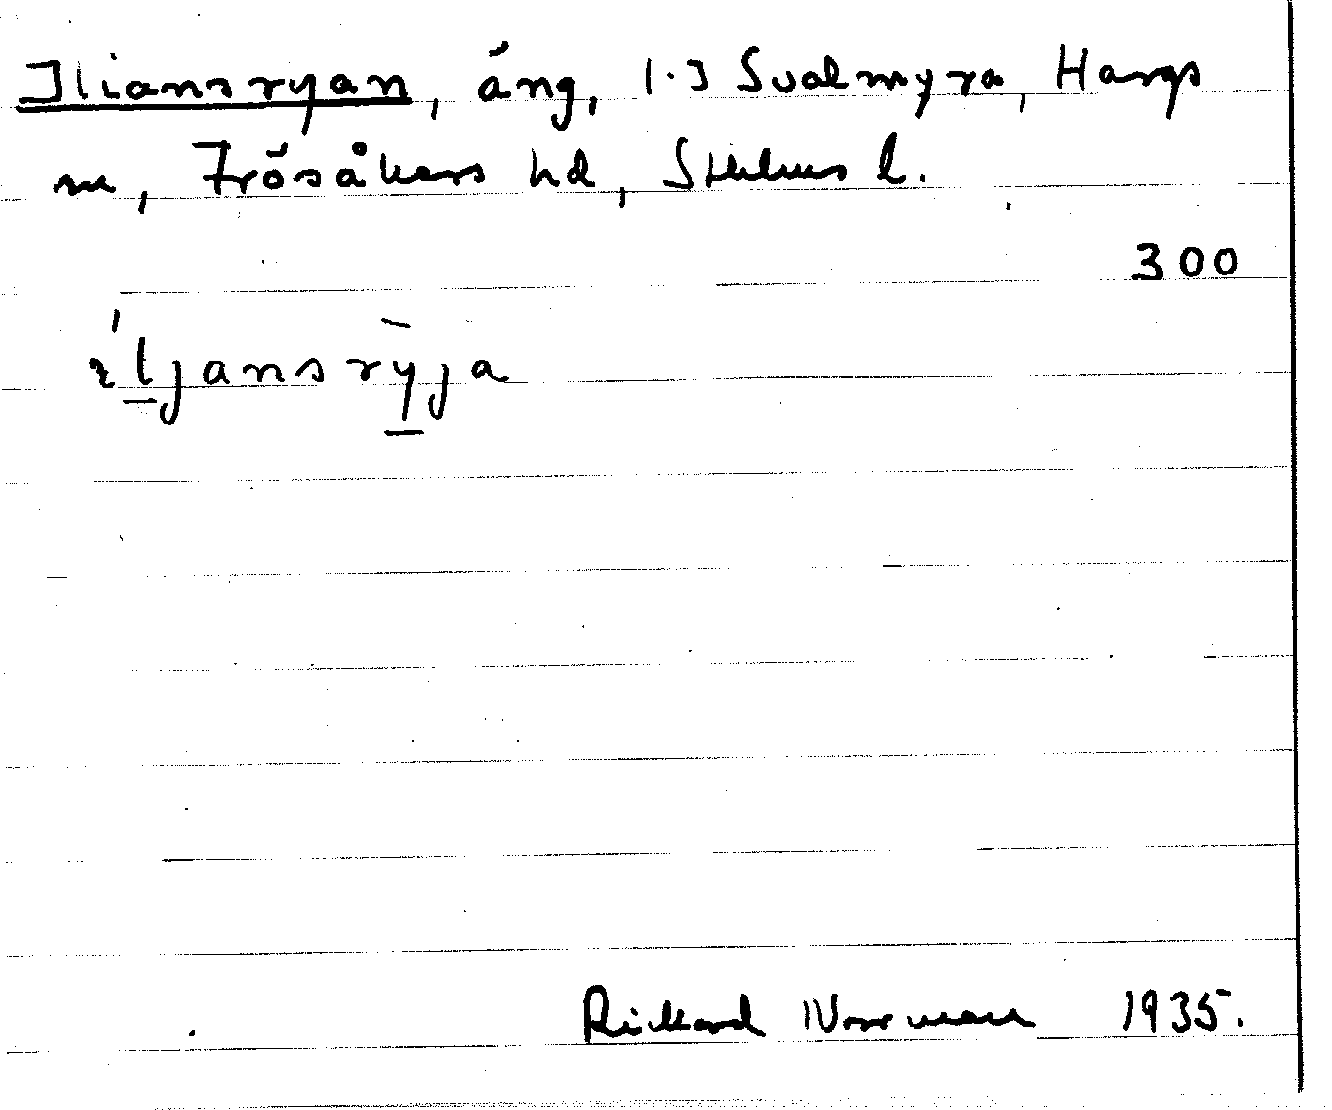 Iliansryan, äng, 1.3 Svalmyra, Hargs
sn, Frösåkers hd, Sthlms l.
300
ıljansryja
Rickard Norrman 1935.